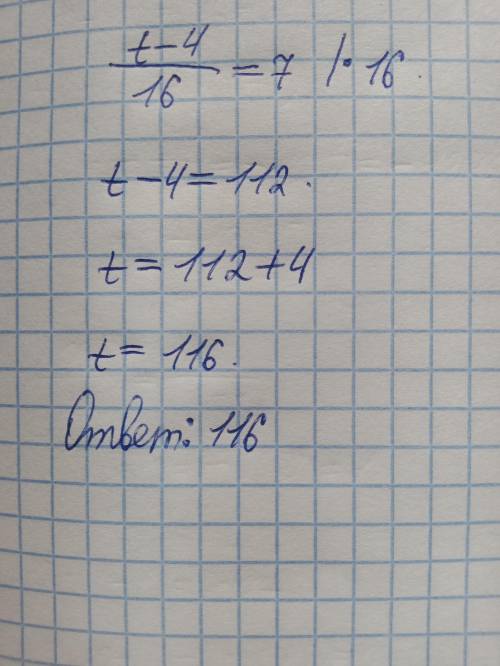 t-4/16 = 7 /· 16.
t-4=112.
t=112+4
t= 116.
Ответ: 116